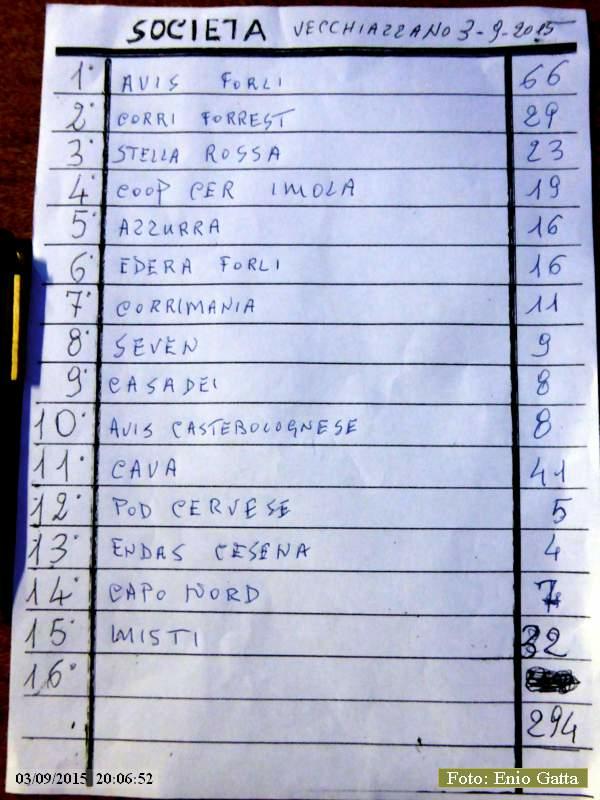 SOCIETA VECCHIAZZANO 3-9-2015
1° AVIS FORLI 66
2° CORRI FORREST 29
3° STELLA ROSSA 23
4° COOP CER IMOLA 19
5° AZZURRA 16
6° EDERA FORLI 16
7° CORRIMANIA 11
8° SEVEN 9
9° CASADEI 8
10° AVIS CASTEBOLOGNESE 8
11° CAVA 41
12° POD CERVESE 5
13° ENDAS CESENA 4
14° CAPO NORD 7
15° MISTI 32
16°
294
03/09/2015 20:06:52
Foto: Enio Gatta